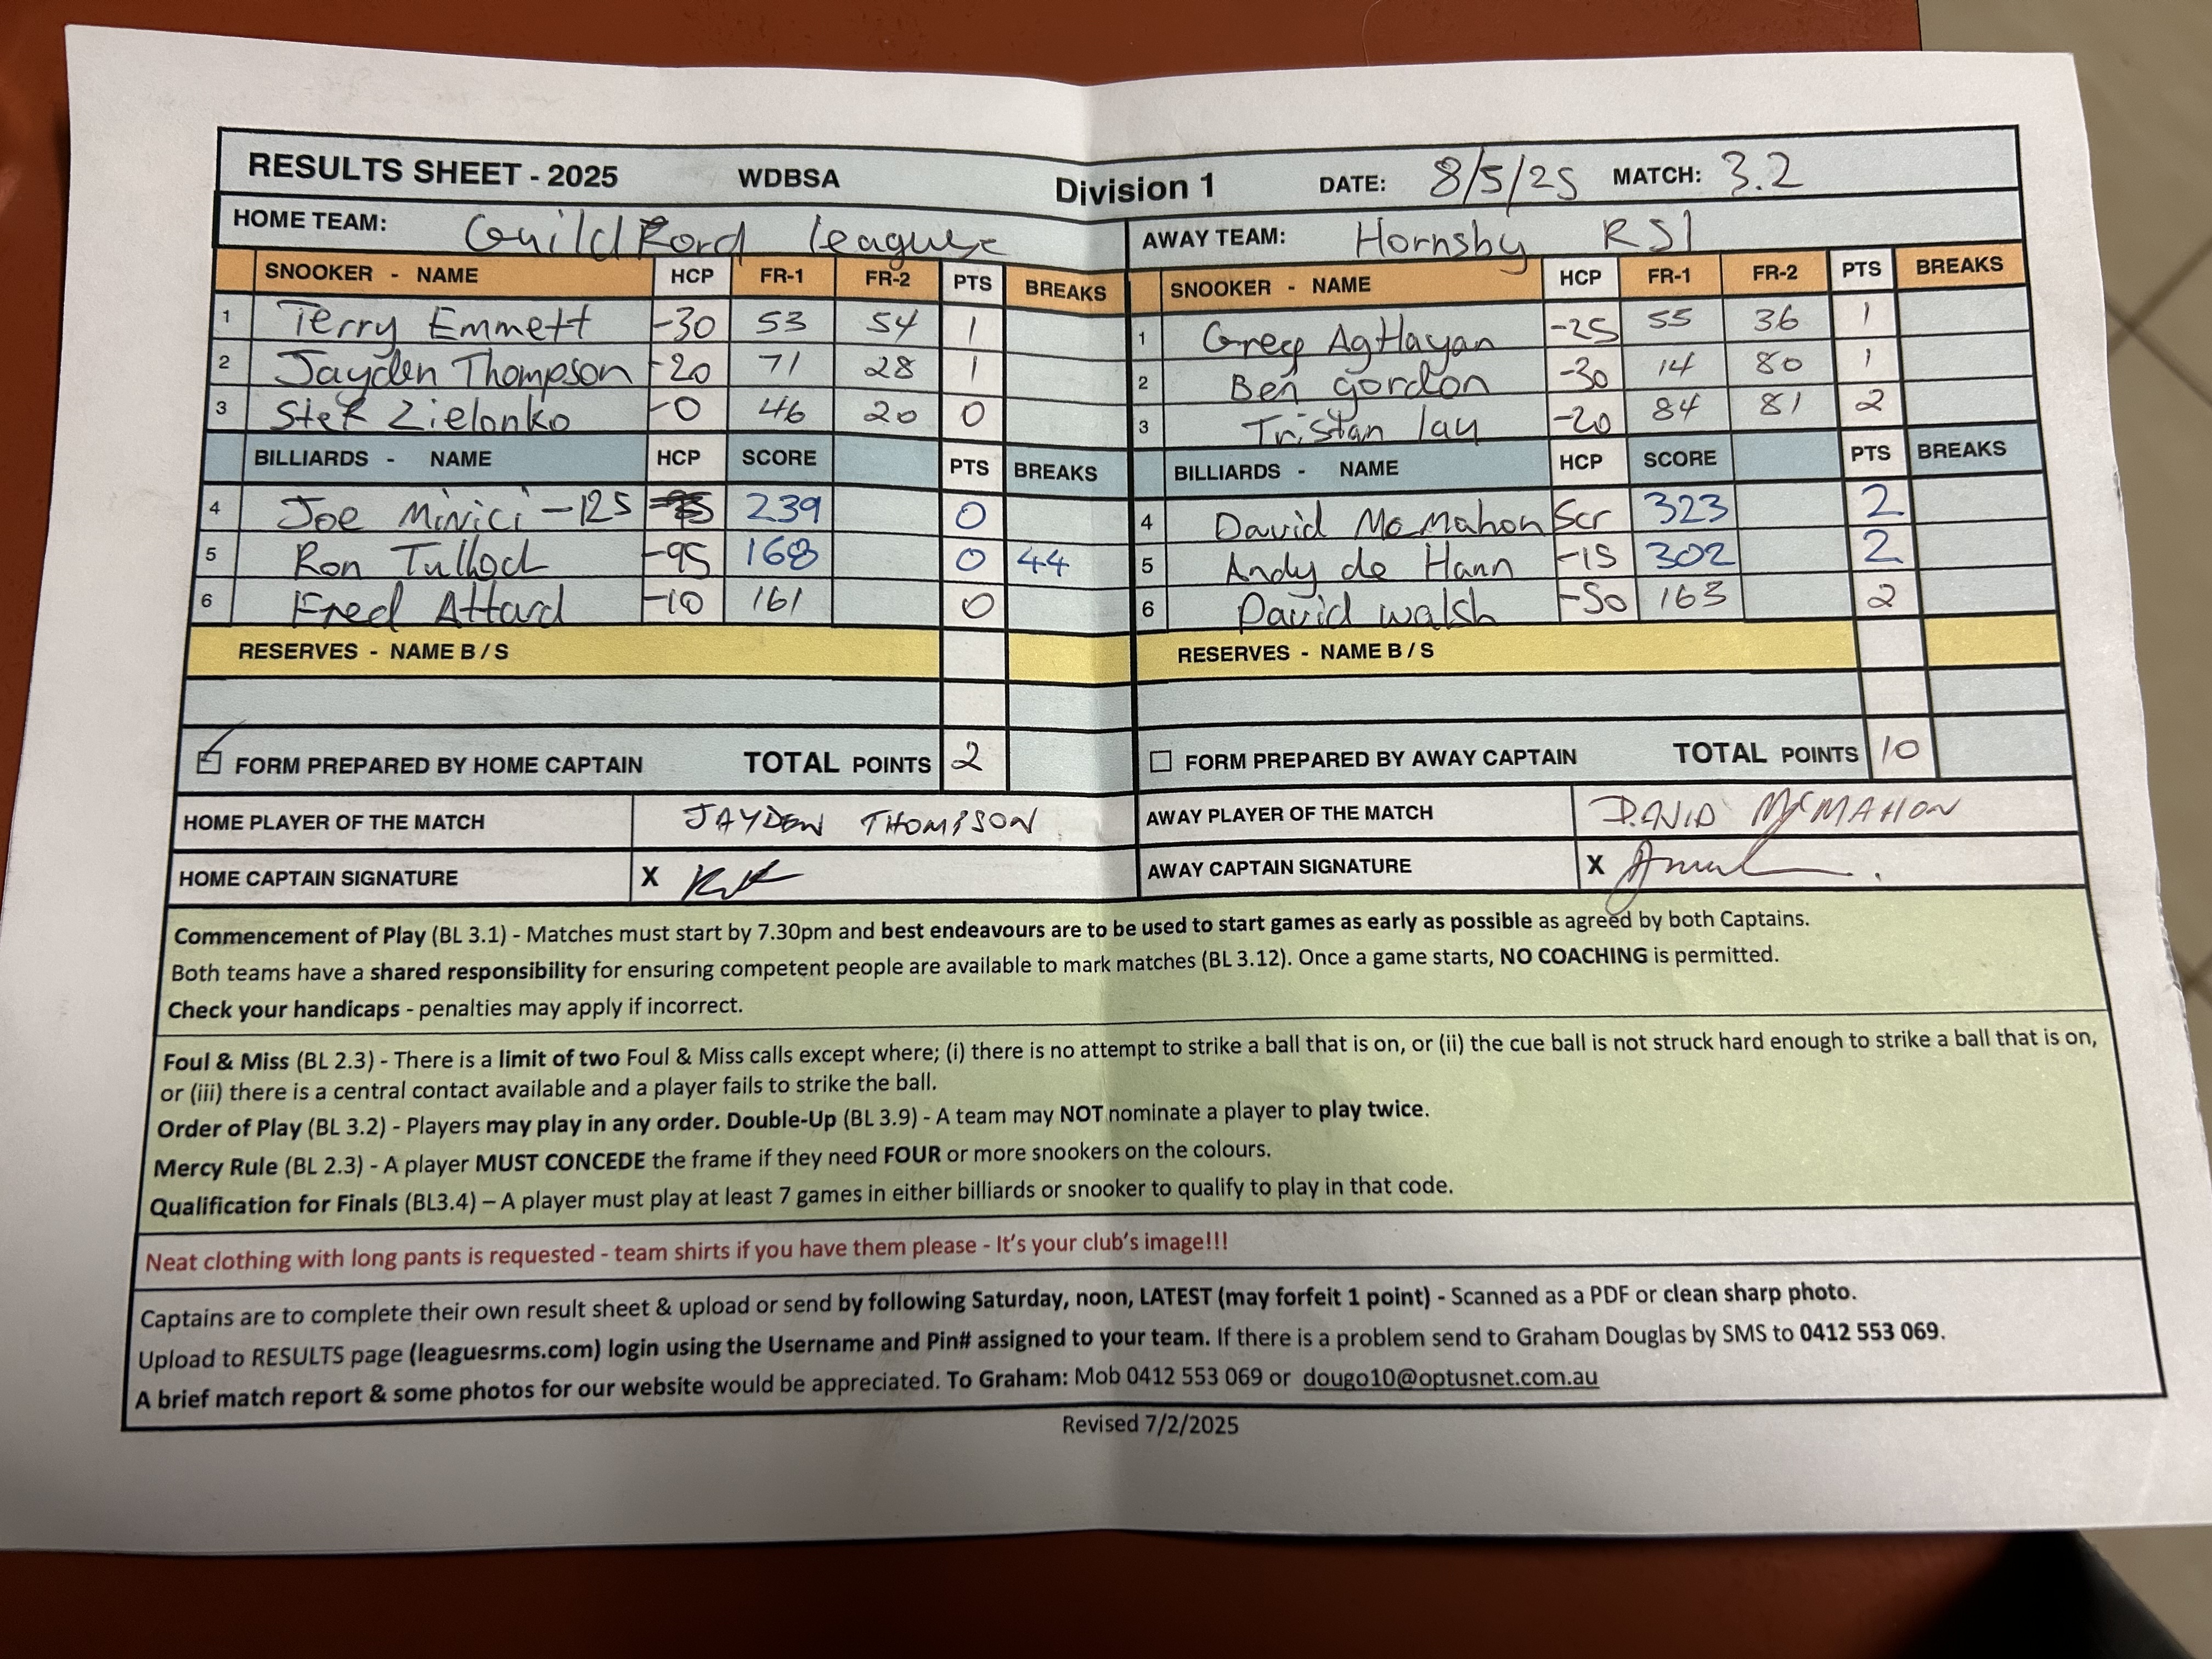 RESULTS SHEET - 2025 WDBSA Division 1 DATE: 8/5/25 MATCH: 3.2
HOME TEAM: Guildford leagues AWAY TEAM: Hornsby RSl
SNOOKER - NAME HCP FR-1 FR-2 PTS BREAKS SNOOKER - NAME HCP FR-1 FR-2 PTS BREAKS
1 Terry Emmett -30 53 54 1 1 Greg AgHayan -25 55 36 1
2 Jayden Thompson -20 71 28 1 2 Ben gordon -30 14 80 1
3 Stef Zielonko -0 46 20 0 3 Tristan lay -20 84 81 2
BILLIARDS - NAME HCP SCORE PTS BREAKS BILLIARDS - NAME HCP SCORE PTS BREAKS
4 Joe Minici -125 239 0 4 David McMahon Scr 323 2
5 Ron Tulloch -95 168 0 44 5 Andy de Hann -15 302 2
6 Fred Attard -10 161 0 6 David walsh -50 163 2
RESERVES - NAME B / S RESERVES - NAME B / S
FORM PREPARED BY HOME CAPTAIN TOTAL POINTS 2 FORM PREPARED BY AWAY CAPTAIN TOTAL POINTS 10
HOME PLAYER OF THE MATCH JAYDEN THOMPSON AWAY PLAYER OF THE MATCH DAVID McMAHON
HOME CAPTAIN SIGNATURE X AWAY CAPTAIN SIGNATURE X
Commencement of Play (BL 3.1) - Matches must start by 7.30pm and best endeavours are to be used to start games as early as possible as agreed by both Captains.
Both teams have a shared responsibility for ensuring competent people are available to mark matches (BL 3.12). Once a game starts, NO COACHING is permitted.
Check your handicaps - penalties may apply if incorrect.
Foul & Miss (BL 2.3) - There is a limit of two Foul & Miss calls except where; (i) there is no attempt to strike a ball that is on, or (ii) the cue ball is not struck hard enough to strike a ball that is on,
or (iii) there is a central contact available and a player fails to strike the ball.
Order of Play (BL 3.2) - Players may play in any order. Double-Up (BL 3.9) - A team may NOT nominate a player to play twice.
Mercy Rule (BL 2.3) - A player MUST CONCEDE the frame if they need FOUR or more snookers on the colours.
Qualification for Finals (BL3.4) – A player must play at least 7 games in either billiards or snooker to qualify to play in that code.
Neat clothing with long pants is requested - team shirts if you have them please - It's your club's image!!!
Captains are to complete their own result sheet & upload or send by following Saturday, noon, LATEST (may forfeit 1 point) - Scanned as a PDF or clean sharp photo.
Upload to RESULTS page (leaguesrms.com) login using the Username and Pin# assigned to your team. If there is a problem send to Graham Douglas by SMS to 0412 553 069.
A brief match report & some photos for our website would be appreciated. To Graham: Mob 0412 553 069 or dougo10@optusnet.com.au
Revised 7/2/2025